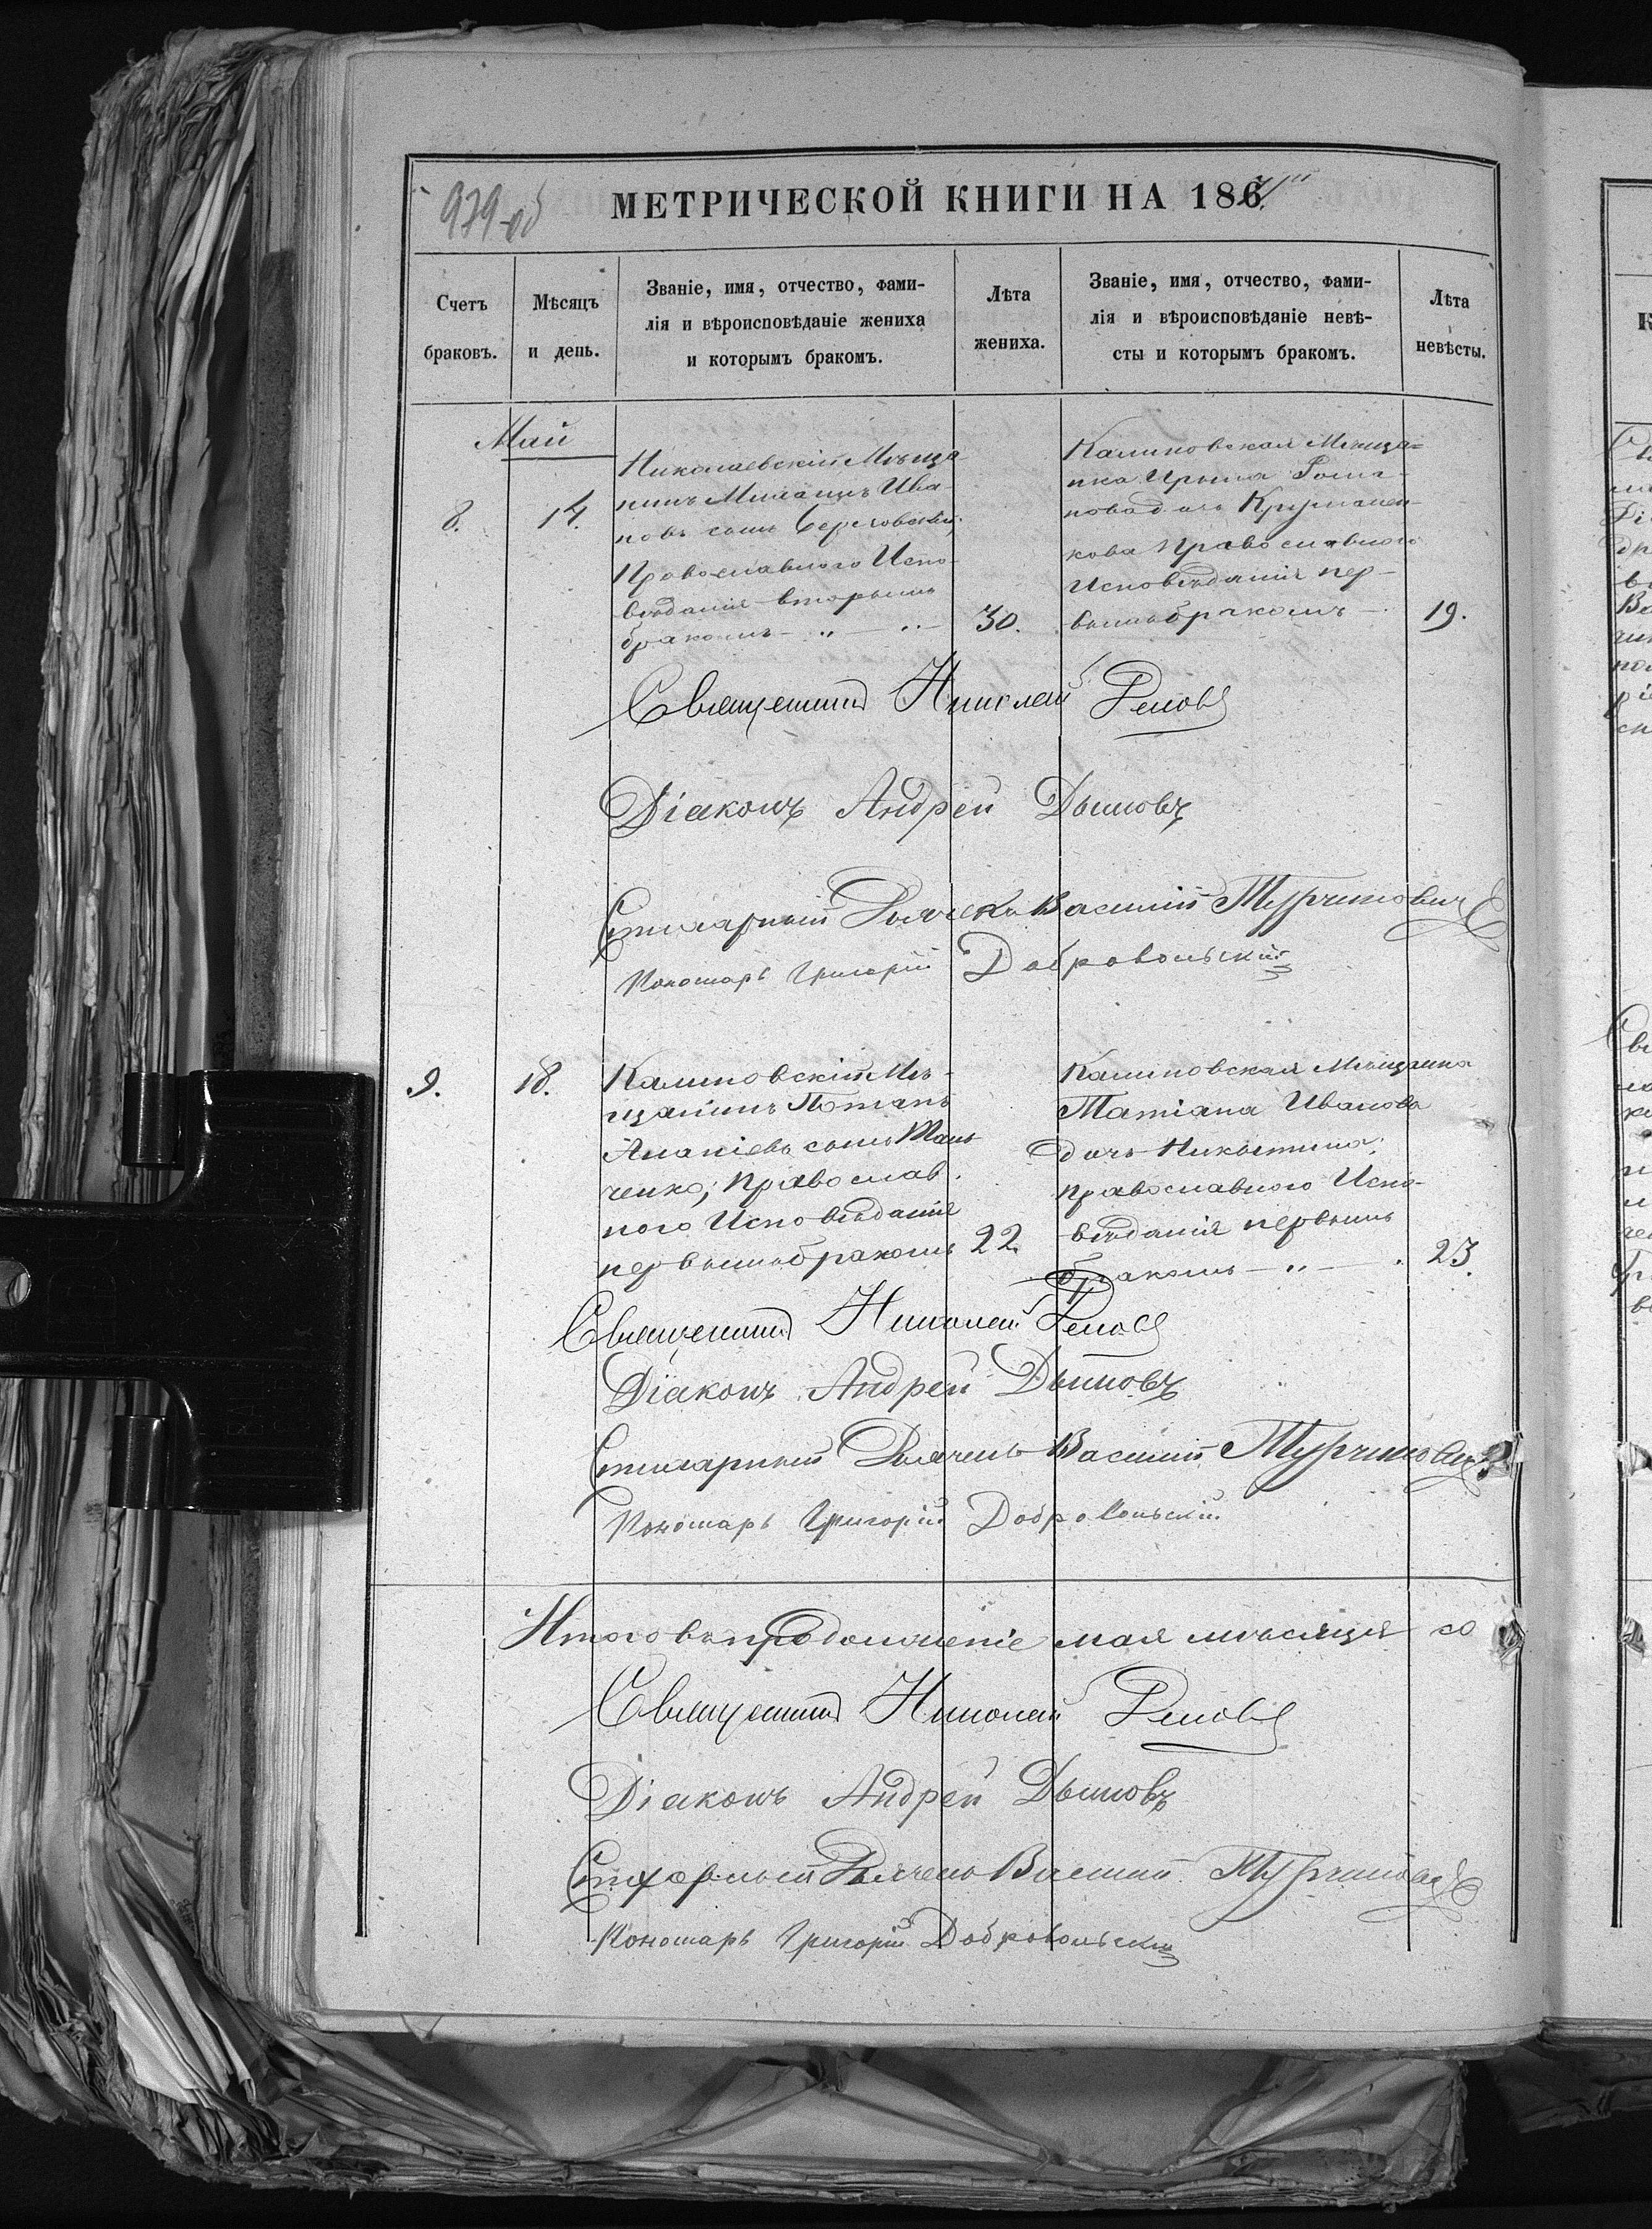 979 об
МЕТРИЧЕСКОЙ КНИГИ НА 186
Счетъ браковъ.
Мѣсяцъ и день.
Званіе, имя, отчество, фами-
лія и вѣроисповѣданіе жениха
и которымъ бракомъ.
Лѣта жениха.
Званіе, имя, отчество, фами-
лія и вѣроисповѣданіе невѣ-
сты и которымъ бракомъ.
Лѣта невѣсты.
Май
8.
14.
Николаевскій Мѣща
нинъ Ива
новъ сынъ
Православнаго Испо
вѣданія вторымъ
бракомъ — „ — „ —
30.
Калиновская Мѣща=
нка Ирина Рома-
нова дочь
кова Православного
Исповѣданія пер-
вымъ бракомъ
19.
Священникъ Николай
Діаконъ Андрей Дымовъ
Стихарный Дьячекъ Василій
Пономарь Григорій Добровольскій
9.
18.
Калиновскій Мѣ-
щанинъ Потапъ
Ананіевъ сынъ
ченко; Православ
ного Исповѣданія
первымъ бракомъ
22.
Калиновская Мѣщанка
Татіана Иванова
дочь Никитина;
Православного Испо-
вѣданія первымъ
бракомъ — „ —
23.
Священникъ Николай
Діаконъ Андрей Дымовъ
Стихарный Дьячекъ Василій
Пономарь Григорій Добровольскій
Итого въ продолженіе мая мѣсяца
Священникъ Николай
Діаконъ Андрей Дымовъ
Стихарный Дьячекъ Василій
Пономарь Григорій Добровольскій